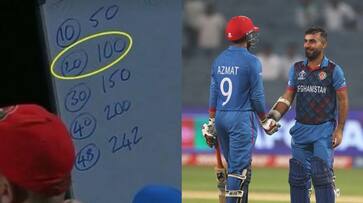 10 50
20 100
30 150
40 200
48 242
AZMAT
9
AFGHANISTAN